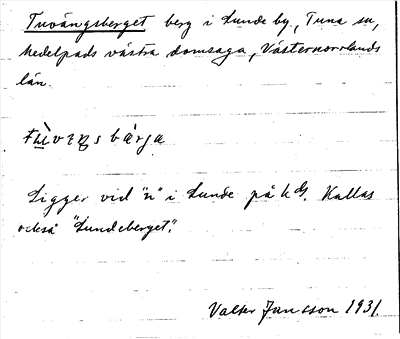 Tuvängsberget berg i Lunde by, Tuna sn,
Medelpads västra domsaga, Västernorrlands
län.
Ligger vid "n" i Lunde på k. Kallas
också "Lundeberget".
Valter Jansson 1931